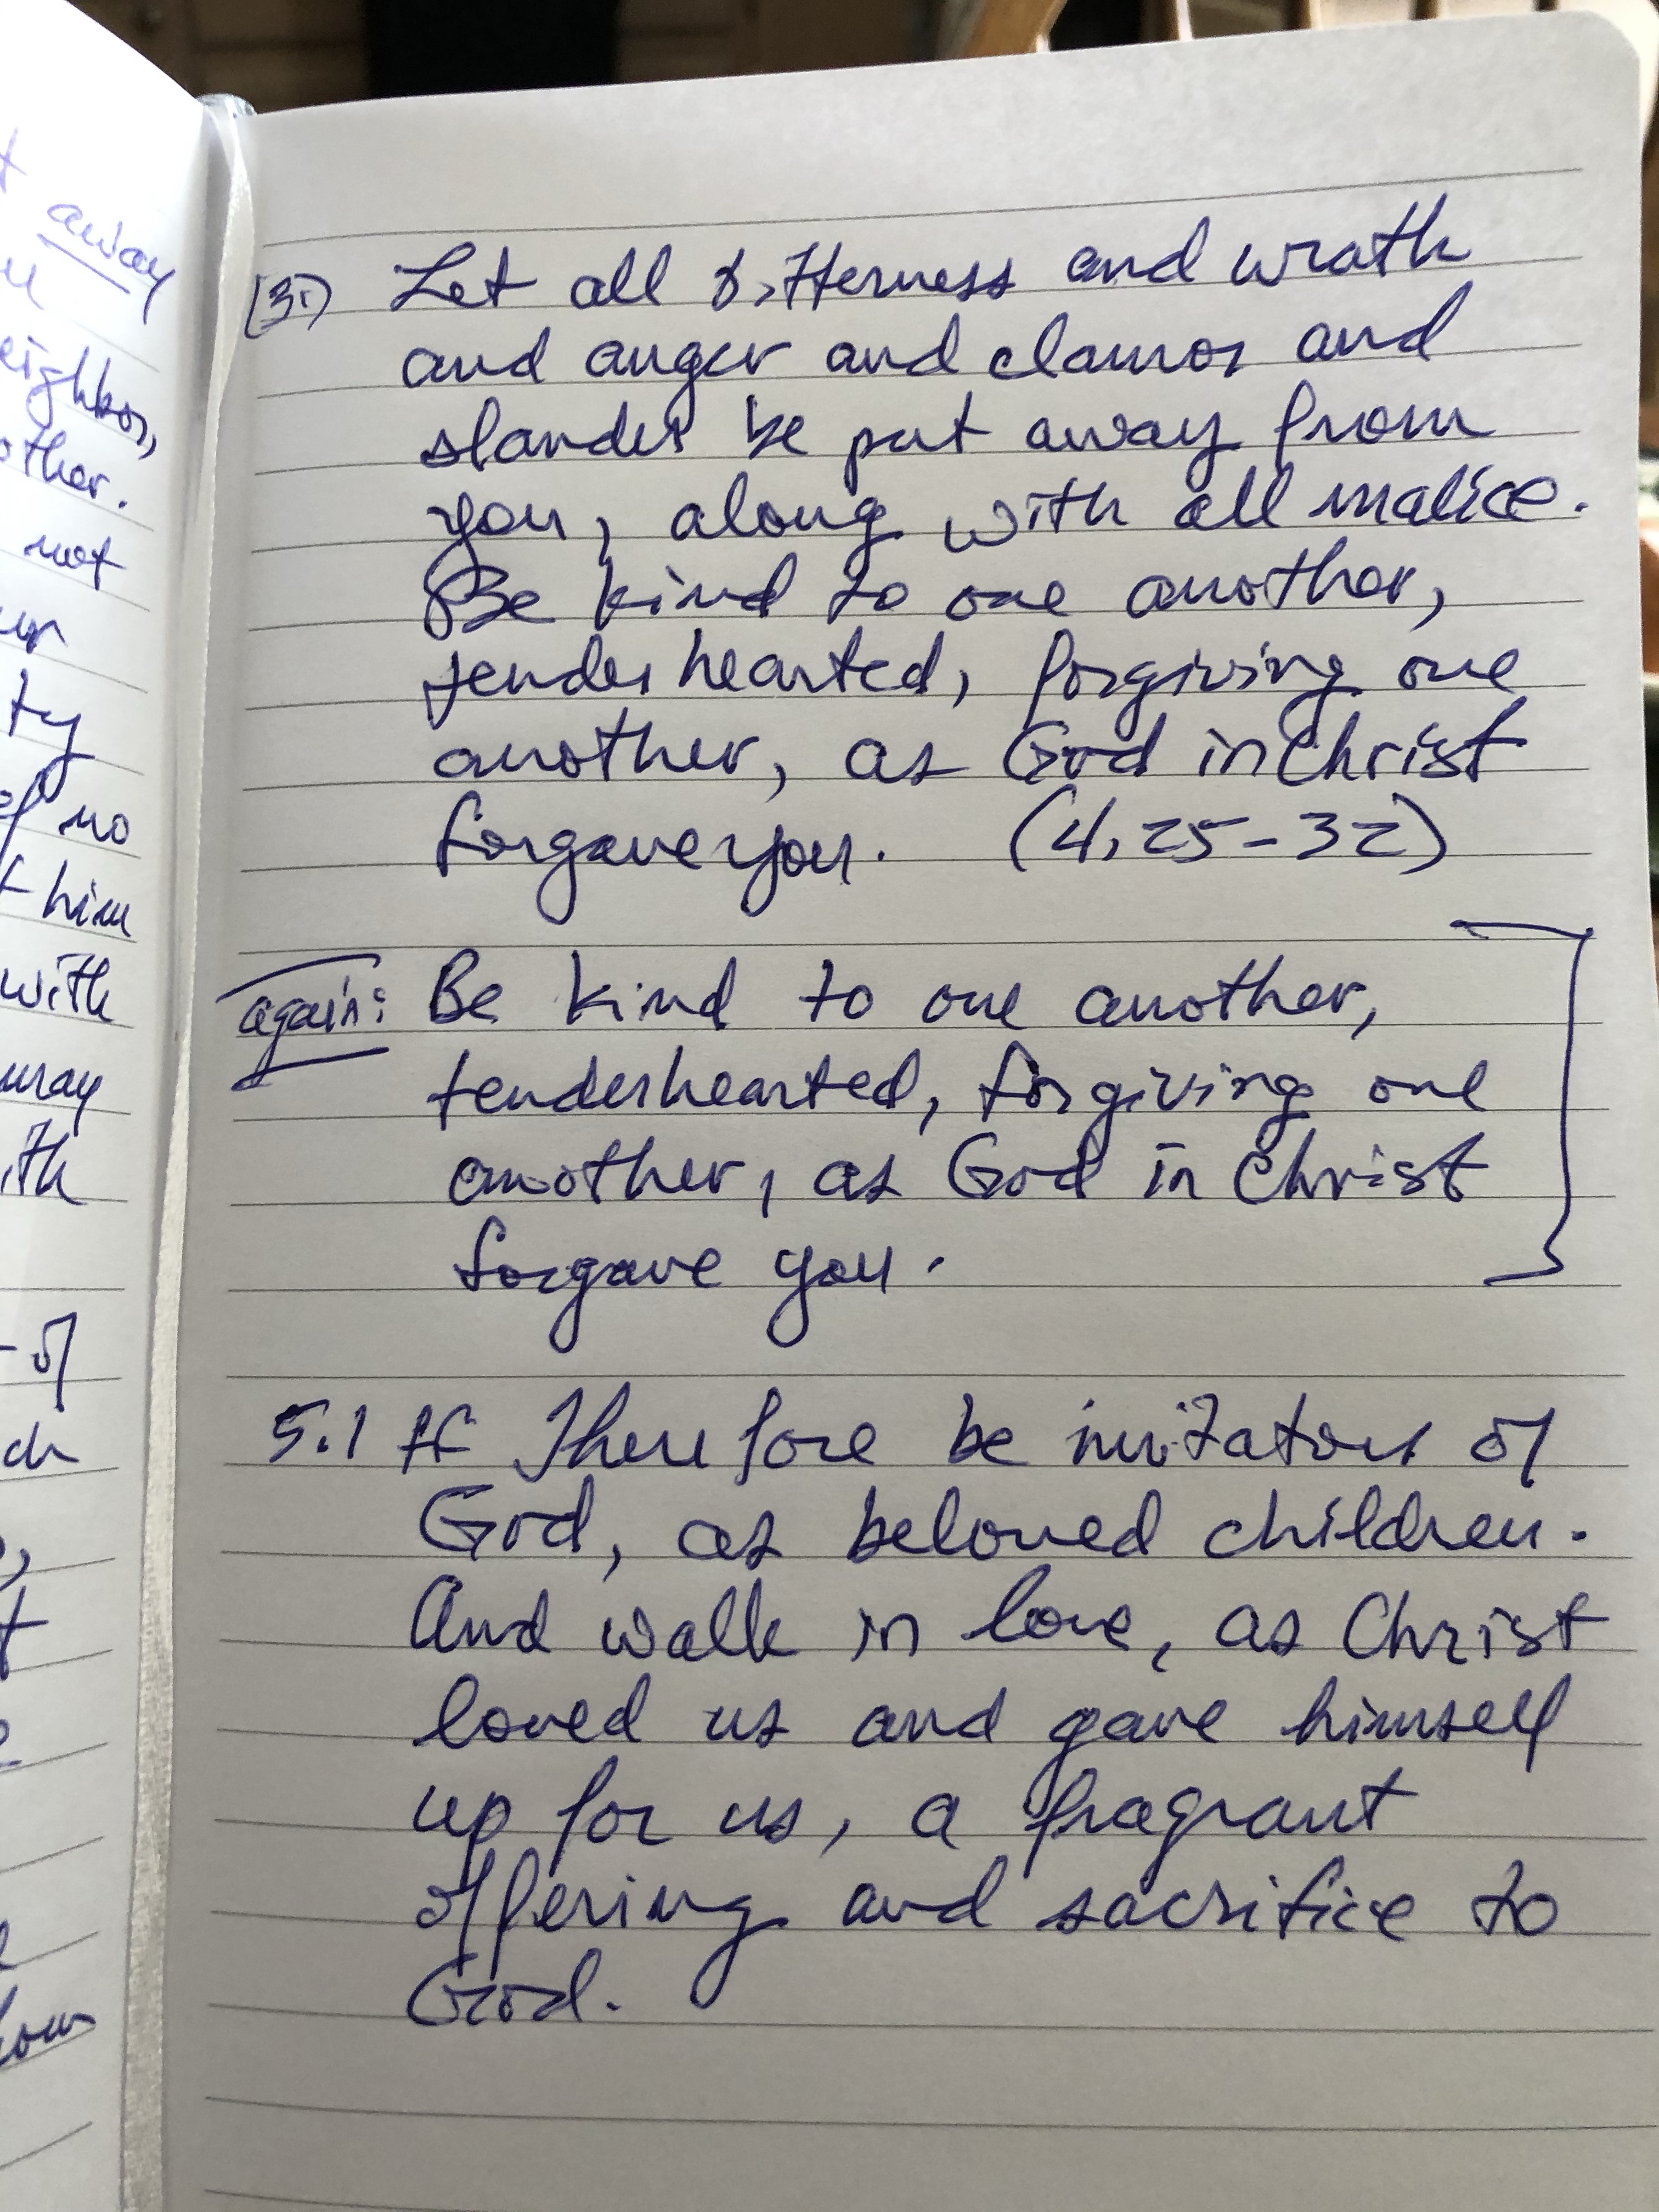 away
eighbor,
other.
not
ty
of no
him
with
may
ith
(31) Let all bitterness and wrath
and anger and clamor and
slander be put away from
you, along with all malice.
Be kind to one another,
tenderhearted, forgiving one
another, as God in Christ
forgave you. (4,25-32)
again: Be kind to one another,
tenderhearted, forgiving one
another, as God in Christ
forgave you.
5.1 ff Therefore be imitators of
God, as beloved children.
And walk in love, as Christ
loved us and gave himself
up for us, a fragrant
offering and sacrifice to
God.